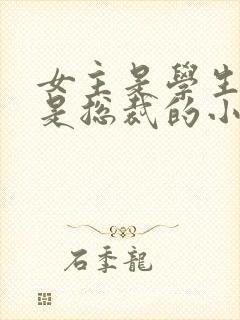 女主是學生
是总裁的小
石季龍